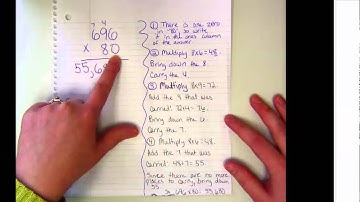 7 4
696
x 80
55,68
① There is one zero
in "80", so write
it in the ones column
of the answer.
② Multiply 8x6=48.
Bring down the 8.
Carry the 4.
③ Multiply 8x9=72.
Add the 4 that was
carried! 72+4=76.
Bring down the 6.
Carry the 7.
④ Multiply 8x6=48.
Add the 7 that was
carried! 48+7=55.
Since there are no more
places to carry, bring down
55. 696x80=55,680